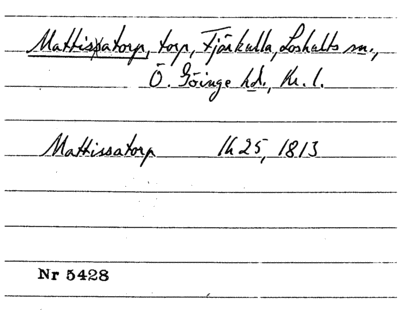 Mattisatorp, torp, Fjärkulla, Loshults sn.,
Ö. Göinge hd., Kr. l.
Mattissatorp 1625, 1813
Nr 5428